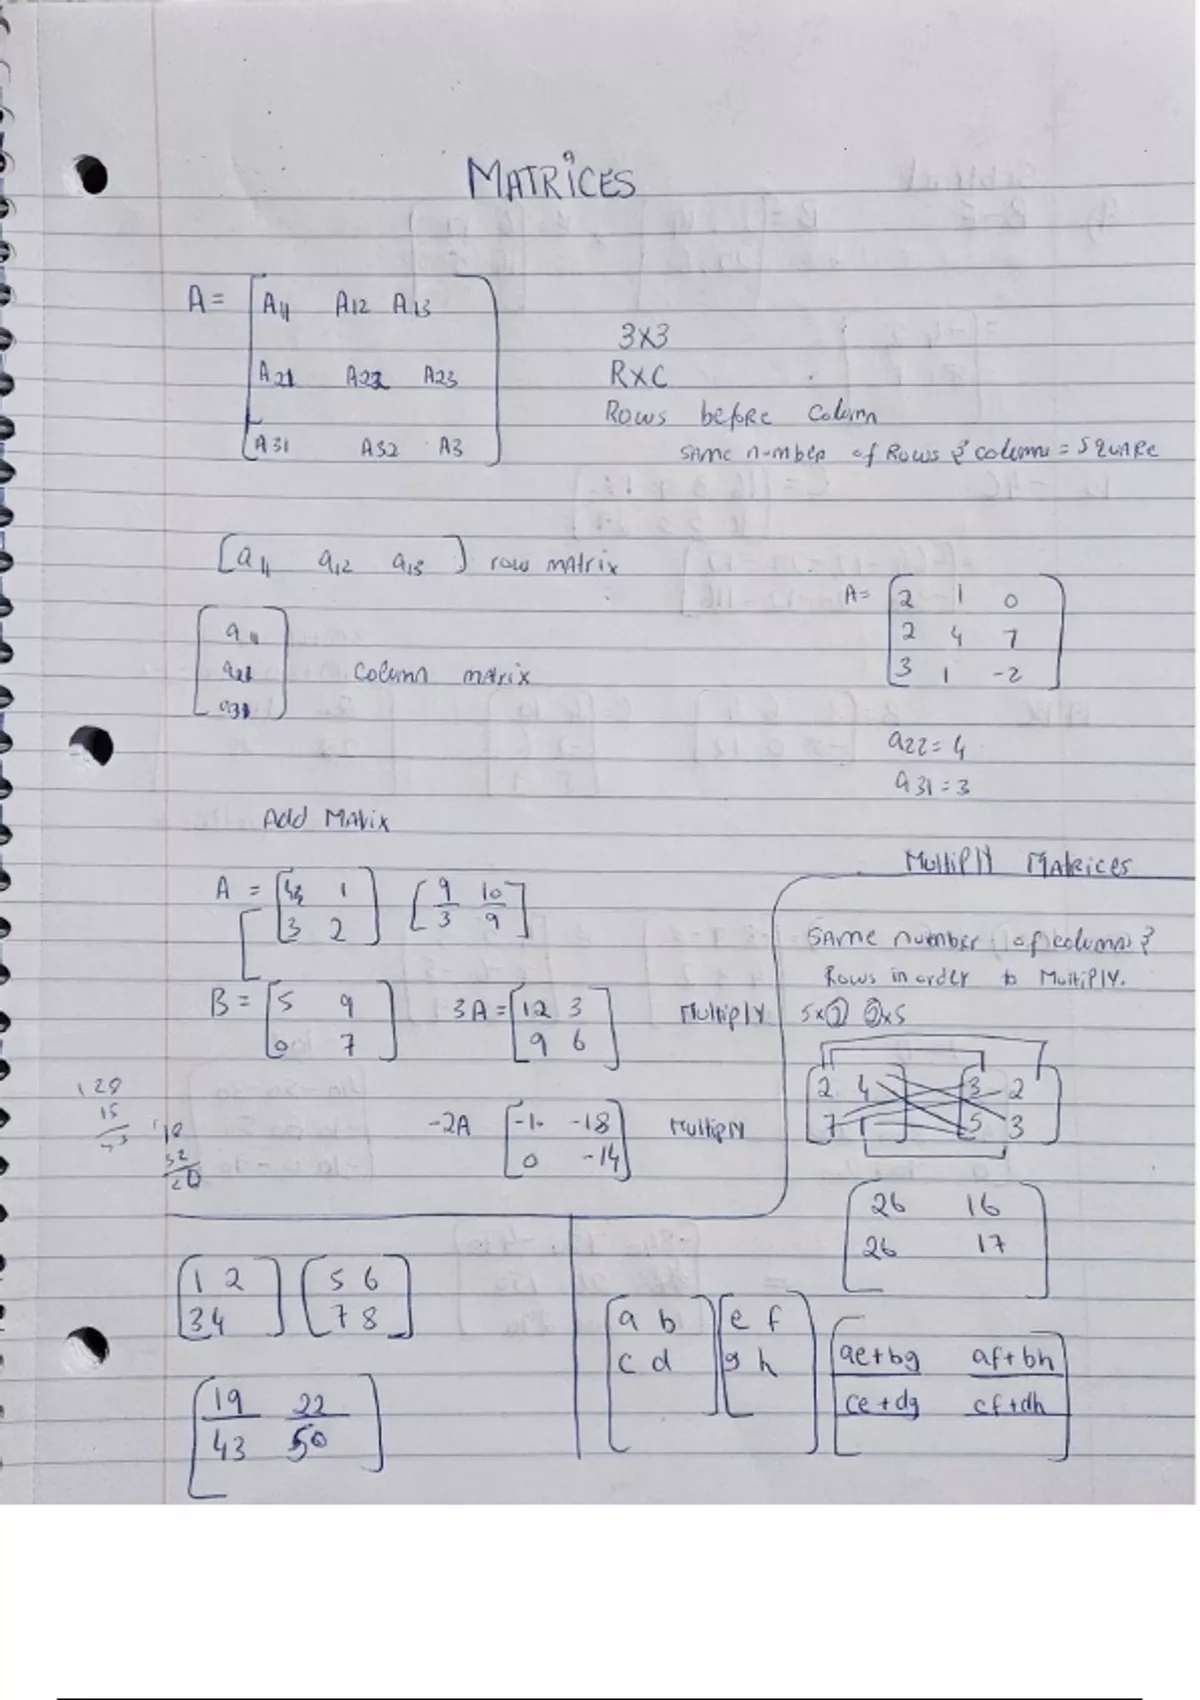 MATRICES
A = [ A11 A12 A13
A21 A22 A23
A31 A32 A3 ]
3x3
RxC
Rows before Column
SAme number of Rows & column = SQUARE
[ a11 a12 a13 ] row matrix
[ a11
a21
a31 ]
Column matrix
A= [ 2 1 0
2 4 7
3 1 -2 ]
a22 = 4
a31 = 3
Add Matrix
A = [ 4 1
3 2 ]
[ 9 10
3 9 ]
B = [ 5 9
0 7 ]
3A = [ 12 3
9 6 ]
Multiply
-2A [ -1 -18
0 -14 ]
Multiply
128
15
18
32
Multiply Matrices
SAme number of column &
Rows in order to Multiply.
5x2 2x5
[ 2 4
7 1 ]
[ 3 2
5 3 ]
[ 26 16
26 17 ]
[ 1 2
3 4 ]
[ 5 6
7 8 ]
[ 19 22
43 50 ]
[ a b
c d ]
[ e f
g h ]
[ ae+bg af+bh
ce+dg cf+dh ]